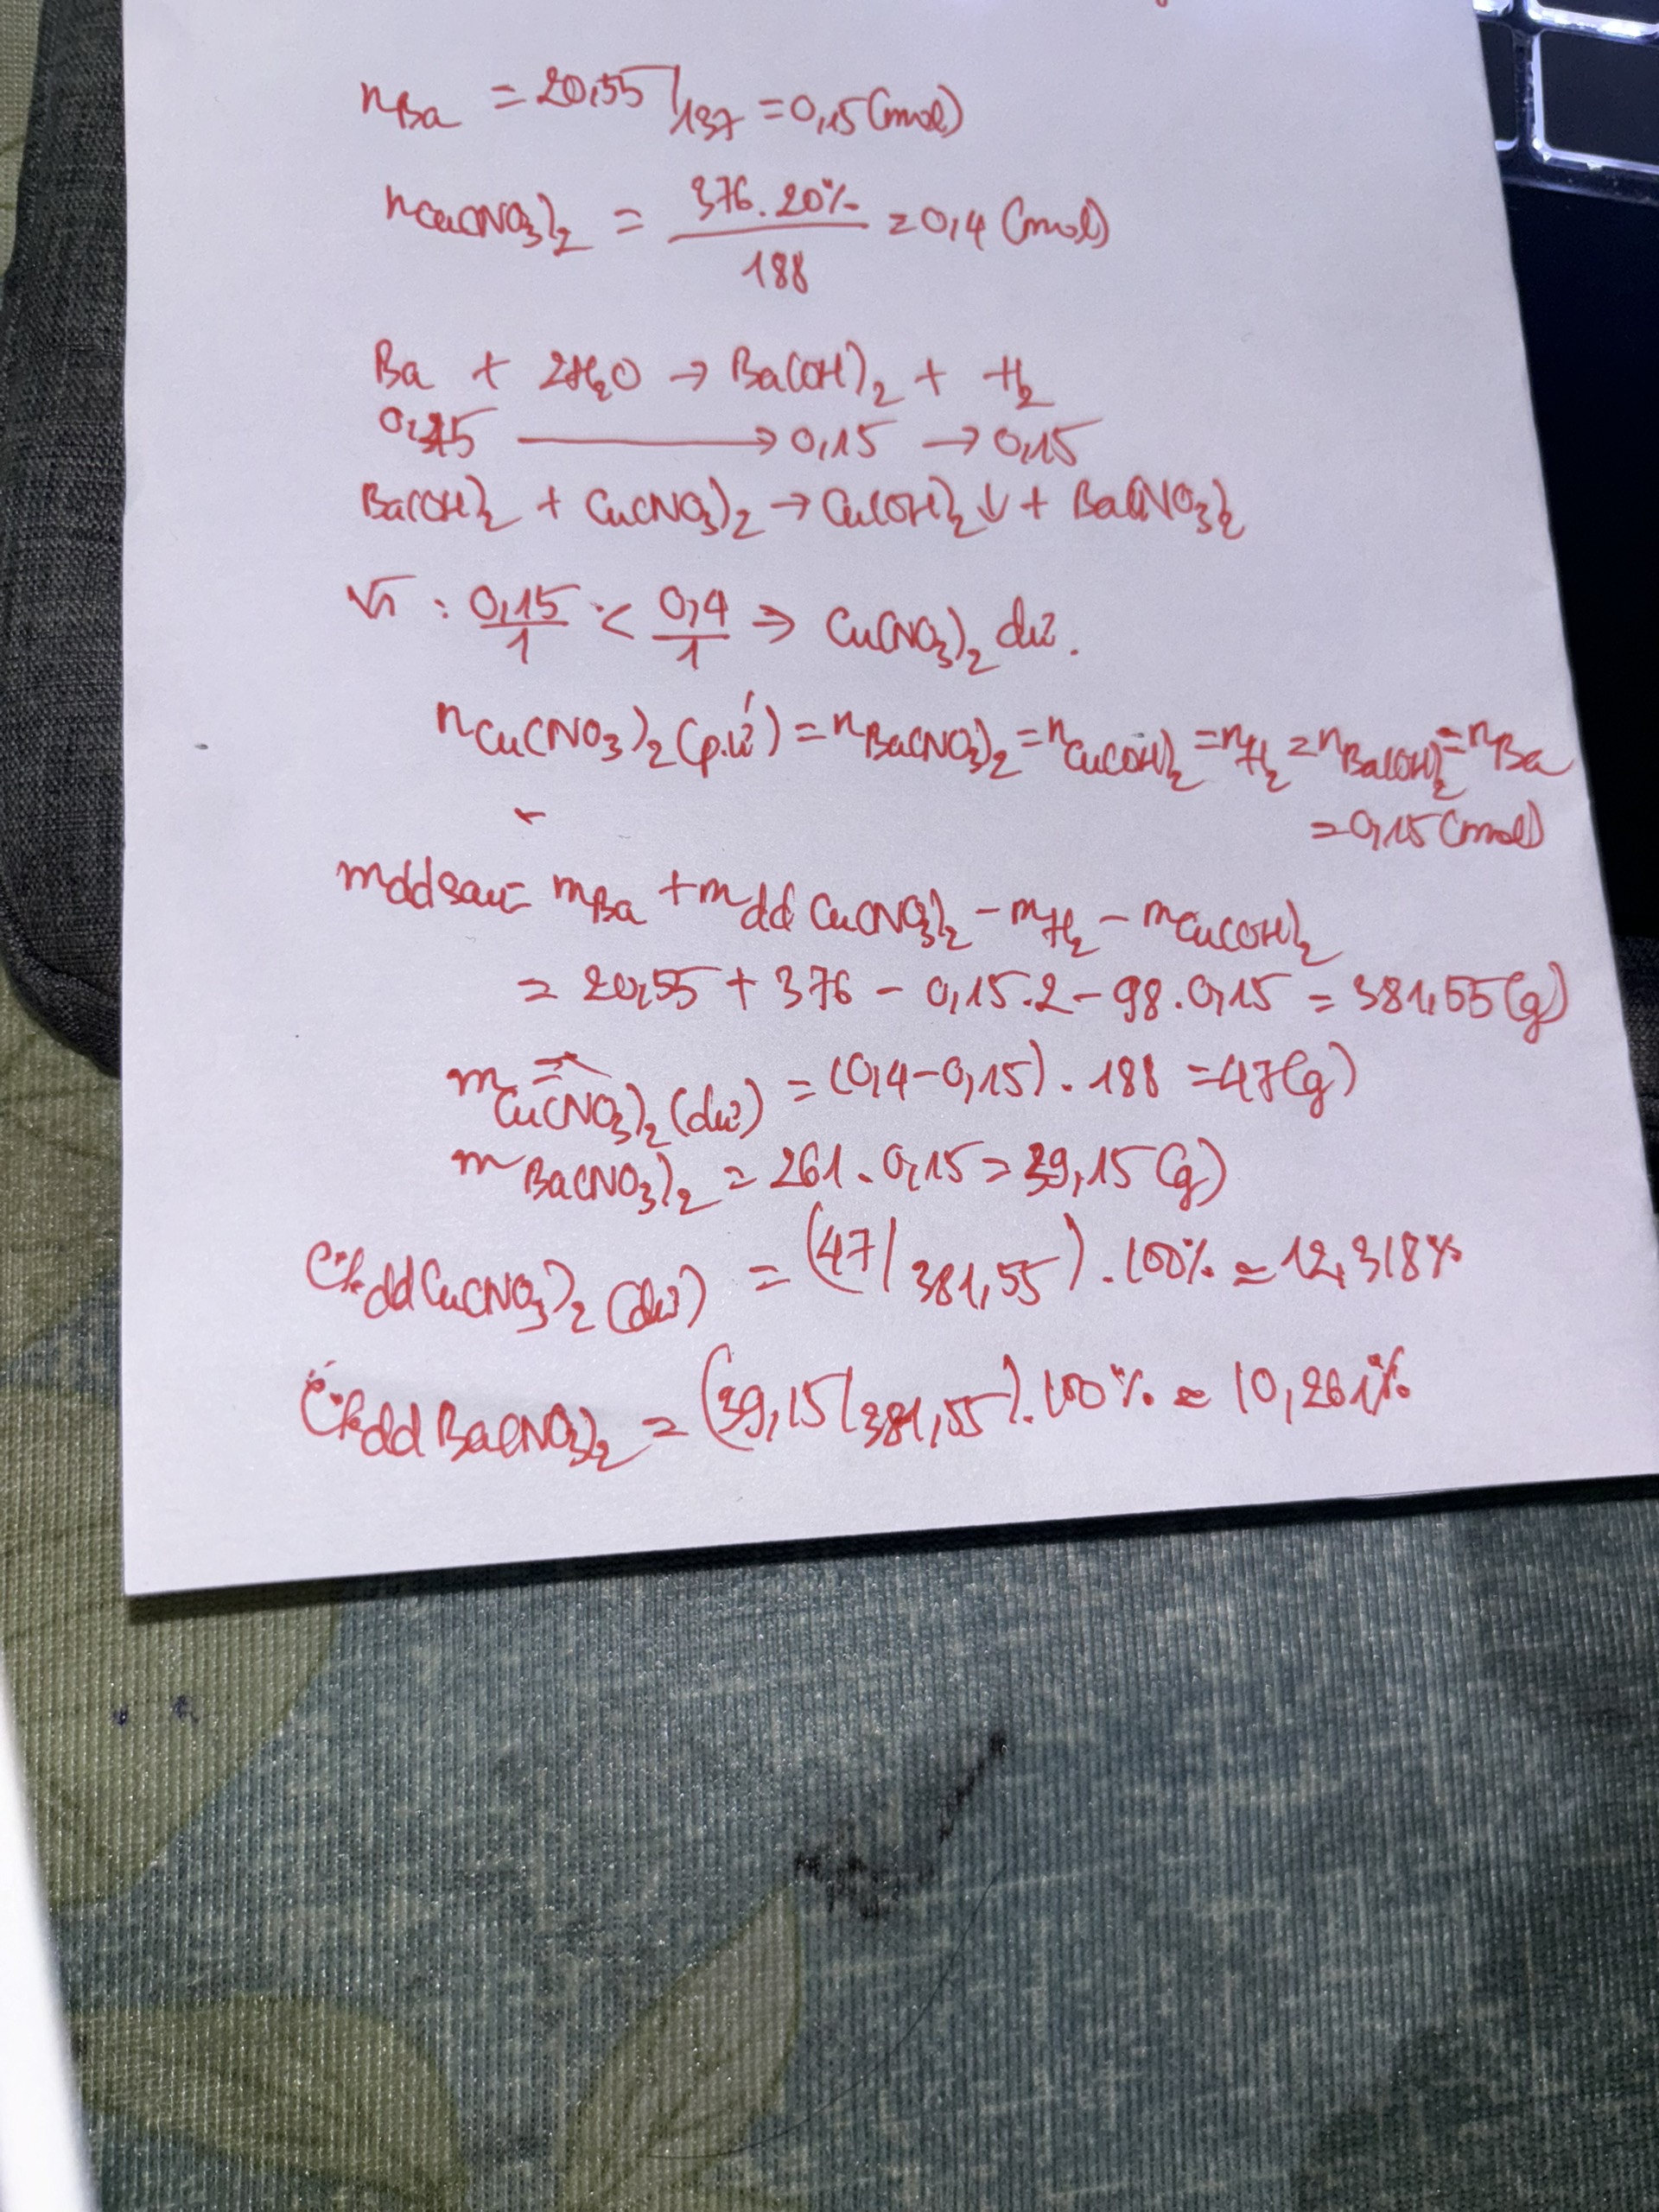 nBa = 20,55/137 = 0,15 (mol)
nCu(NO3)2 = 376.20%/188 = 0,4 (mol)
Ba + 2H2O → Ba(OH)2 + H2
0,15 → 0,15 → 0,15
Ba(OH)2 + Cu(NO3)2 → Cu(OH)2↓ + Ba(NO3)2
Vì : 0,15/1 < 0,4/1 → Cu(NO3)2 dư.
nCu(NO3)2 (p.ứ) = nBa(NO3)2 = nCu(OH)2 = nH2 = nBa(OH)2 = nBa
= 0,15 (mol)
mddsau = mBa + mddCu(NO3)2 - mH2 - mCu(OH)2
= 20,55 + 376 - 0,15.2 - 98.0,15 = 381,55 (g)
mCu(NO3)2 (dư) = (0,4-0,15).188 = 47(g)
mBa(NO3)2 = 261.0,15 = 39,15 (g)
C%ddCu(NO3)2 (dư) = (47/381,55).100% ≈ 12,318%
C%ddBa(NO3)2 = (39,15/381,55).100% ≈ 10,261%